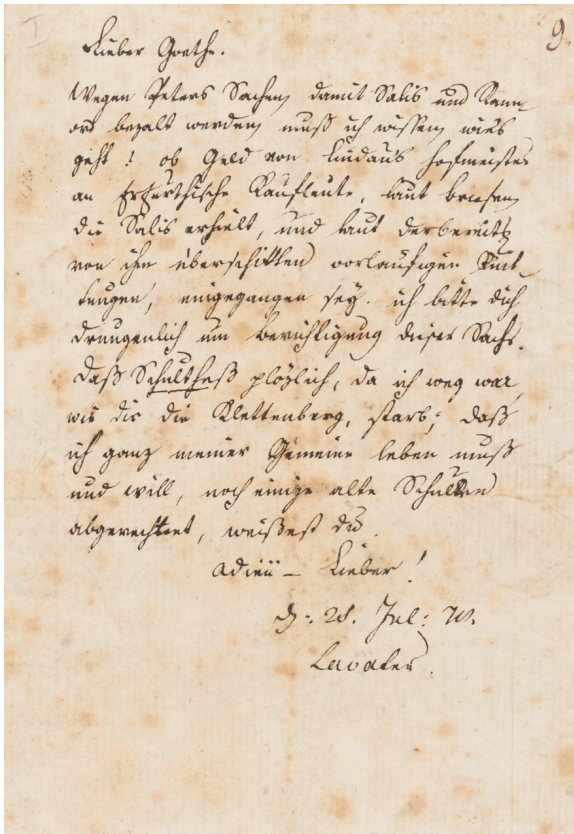 9.
Lieber Goethe.
Wegen Peters Sachen, damit Salis und
bezalt werden, muß ich wißen, wie's
geht! ob Geld von Lindau's Hofmeister
an Erfurthische Kaufleute, laut briefen,
die Salis erhielt, und laut der bereits
von ihm überschikten vorlaüfigen Quit-
tungen, eingegangen sey. ich bitte dich
drungenlich um berichtigung dieser Sache.
daß Schultheß plözlich, da ich weg war,
wie dir die Klettenberg, starb; daß
ich ganz meiner Gemeine leben muß
und will, noch einige alte Schulden
abgerechnet, weißest du.
adieü – Lieber!
d: 28. Jul: 78.
Lavater.